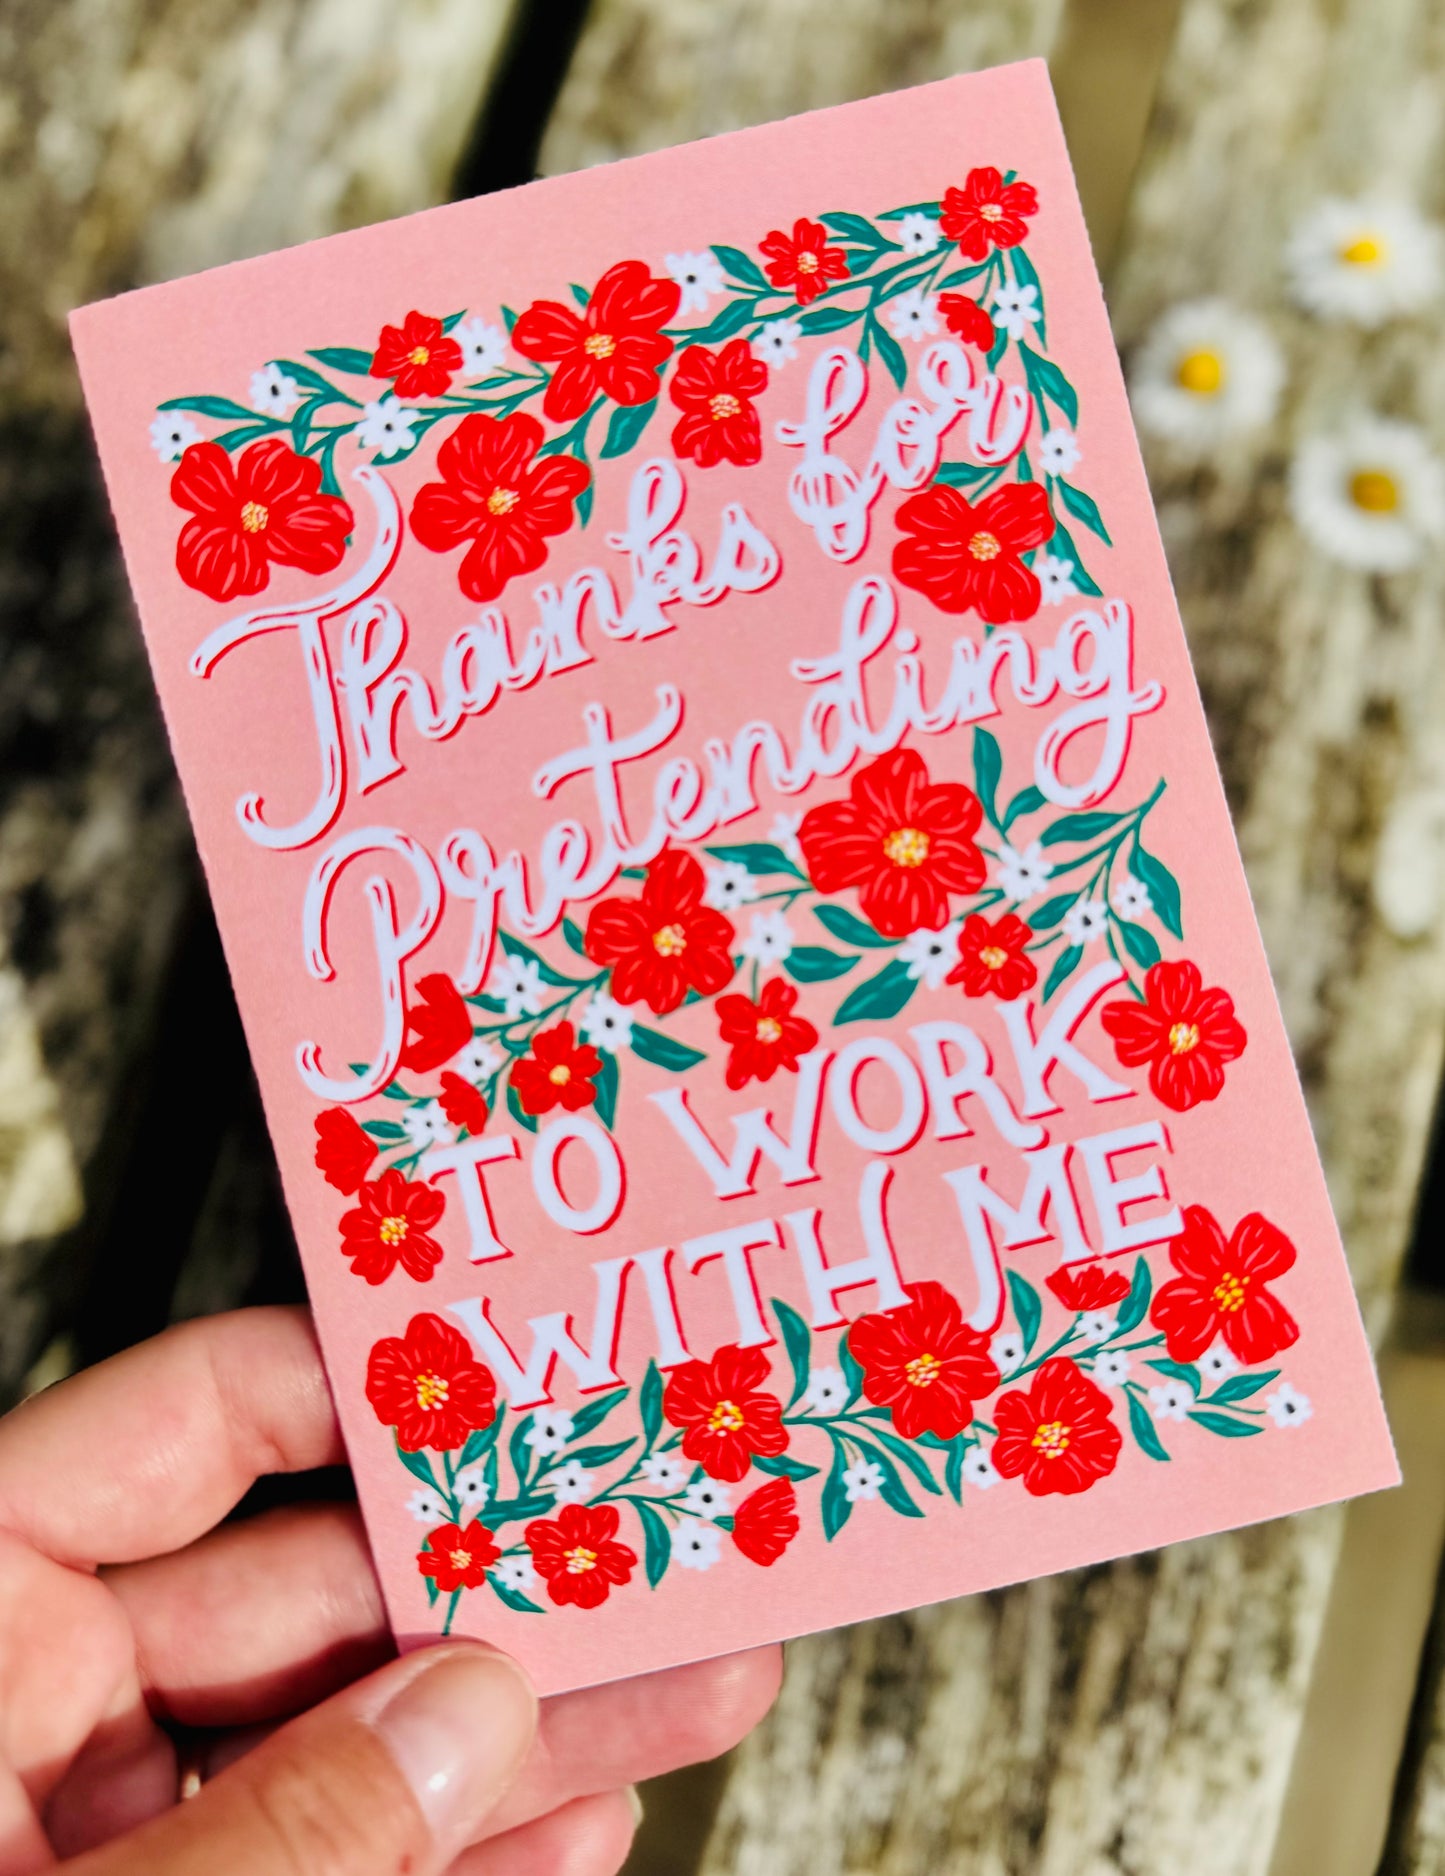 Thanks for
Pretending
TO WORK
WITH ME